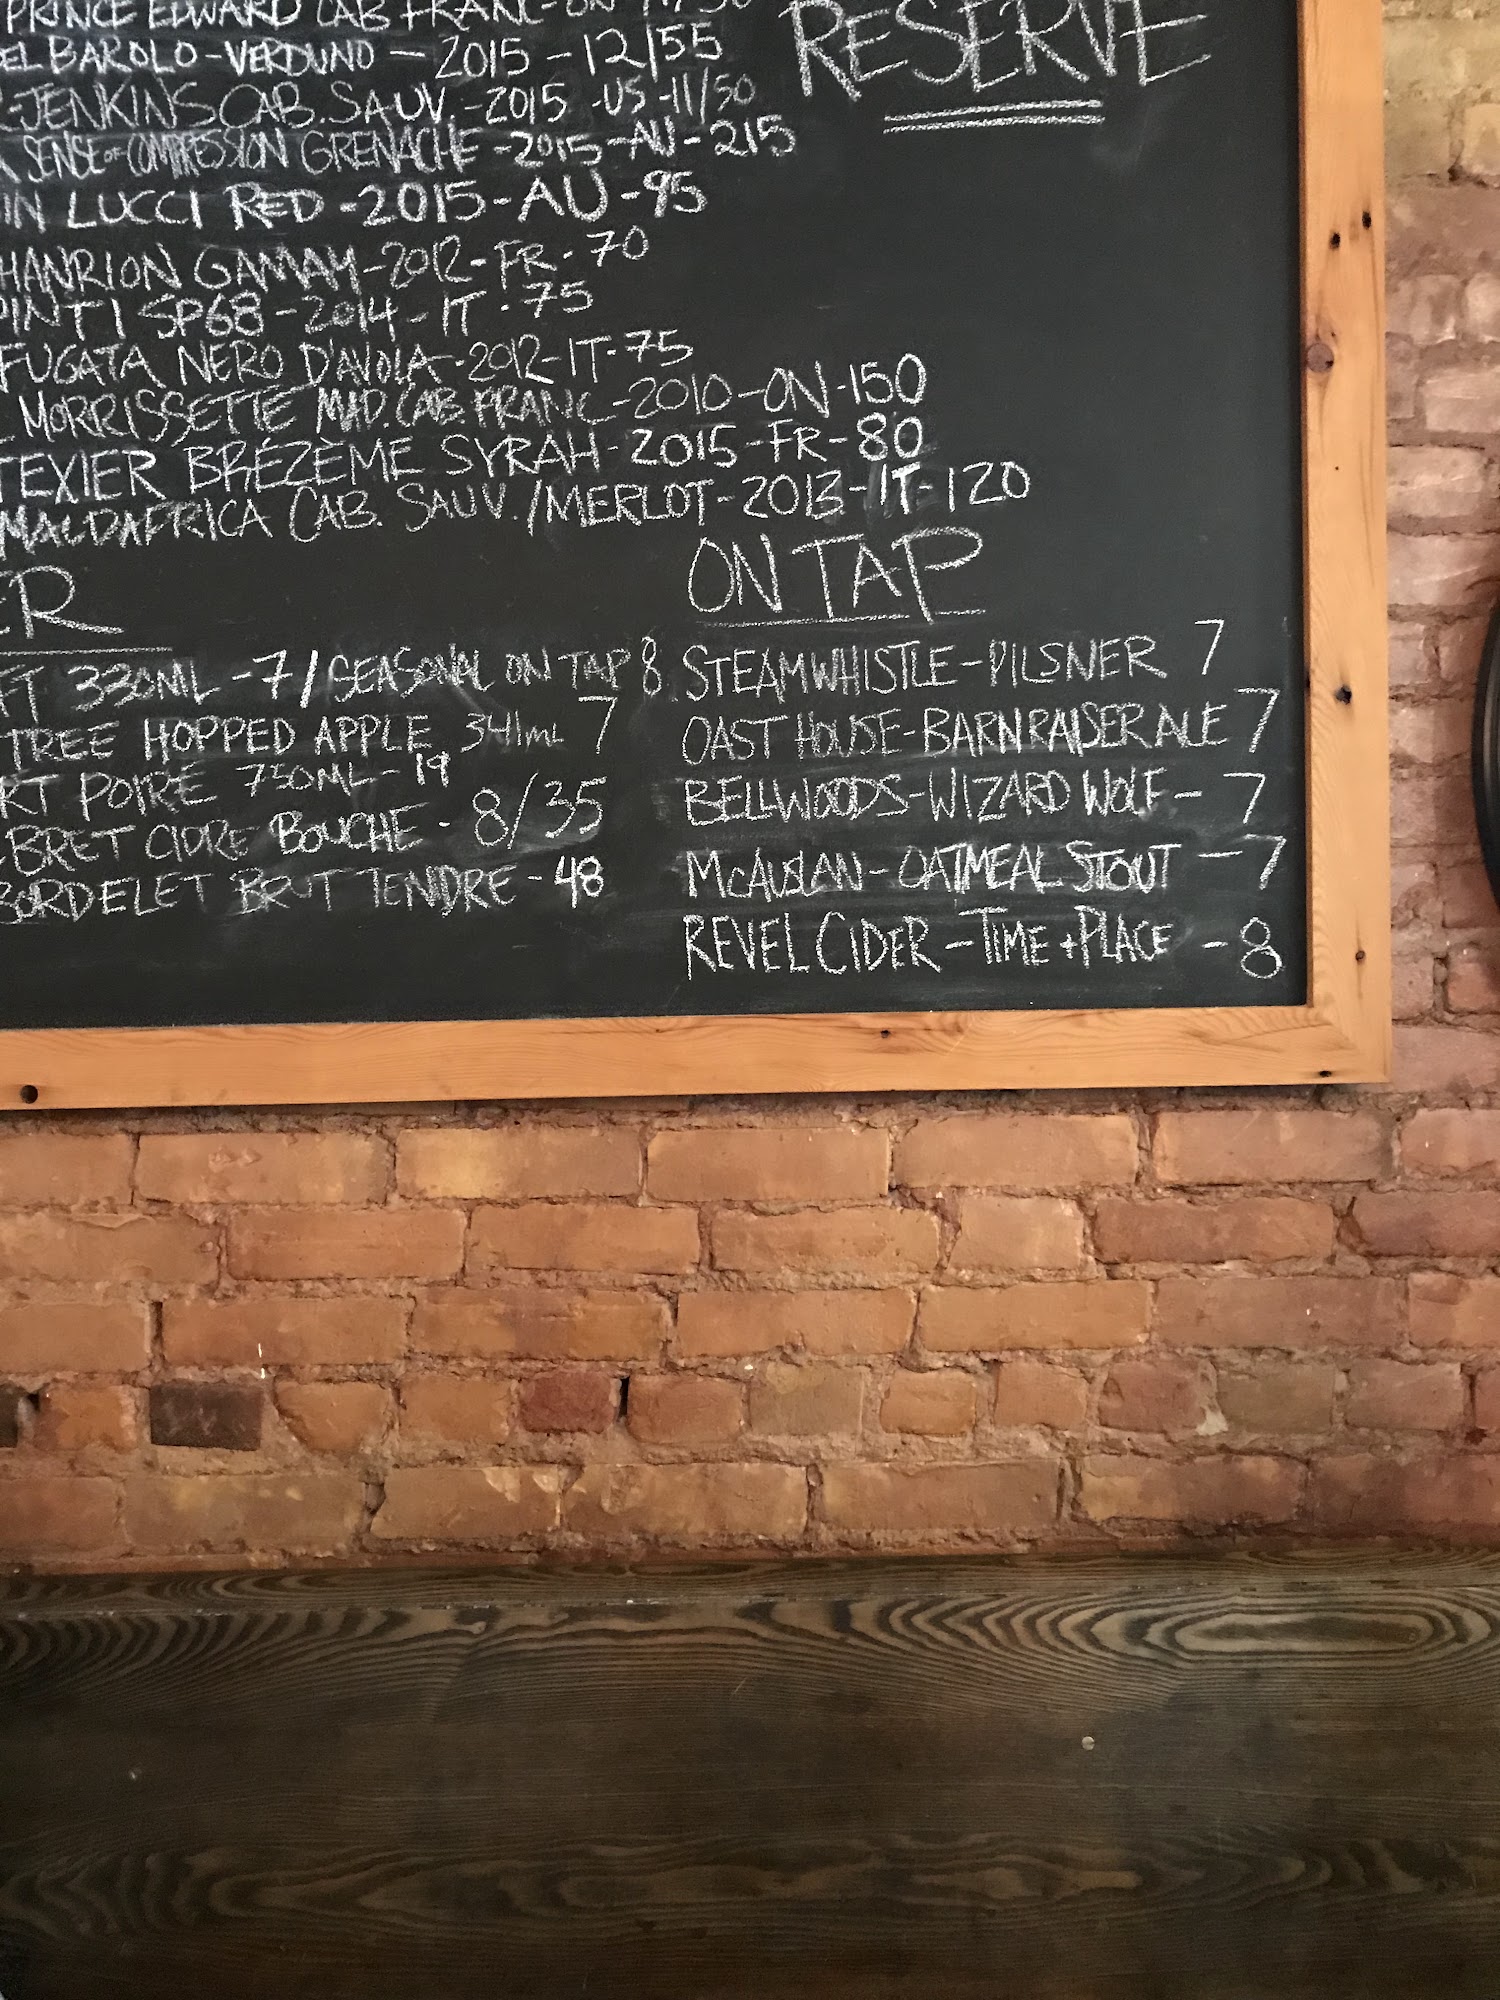 PRINCE EDWARD CAB FRANC-ON
EL BAROLO-VERDUNO - 2015 - 12/55
JENKINS CAB. SAUV. - 2015 - US - 11/50
SENSE OF COMPRESSION GRENACHE - 2015 - AU - 215
LUCCI RED - 2015 - AU - 95
HANRION GAMAY - 2012 - FR - 70
PINTI SP68 - 2014 - IT - 75
FUGATA NERO D'AVOLA - 2012 - IT - 75
MORRISSETTE MAD. CAB. FRANC - 2010 - ON - 150
TEXIER BRÉZÈME SYRAH - 2015 - FR - 80
MACDAFRICA CAB. SAUV./MERLOT - 2013 - IT - 120
RESERVE
ER
FT 330ML - 7/SEASONAL ON TAP 8
TREE HOPPED APPLE 341mL 7
RT POIRÉ 750ML - 19
BRET CIDRE BOUCHE - 8/35
BORDELET BRUT TENDRE - 48
ON TAP
STEAMWHISTLE - PILSNER 7
OAST HOUSE - BARNRAISER ALE 7
BELLWOODS - WIZARD WOLF - 7
MCAUSLAN - OATMEAL STOUT - 7
REVEL CIDER - TIME + PLACE - 8